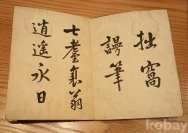 拙窩
謾筆
七耋衰翁
逍遙永日
kobay